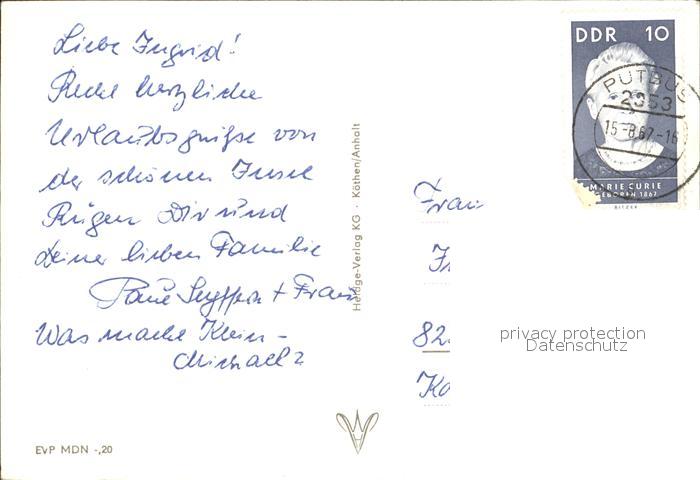 Liebe Ingrid!
Recht herzliche
Urlaubsgrüße von
der schönen Insel
Rügen Dir und
Deiner lieben Familie
Paul + Frau
Was macht Klein-
Michael?
EVP MDN -,20
Heldge-Verlag KG · Köthen/Anholt
DDR 10
PUTBUS
2353
15-8.67-16
MARIE CURIE
GEBOREN 1867
BITZER
Frau
82
Ko
privacy protection
Datenschutz